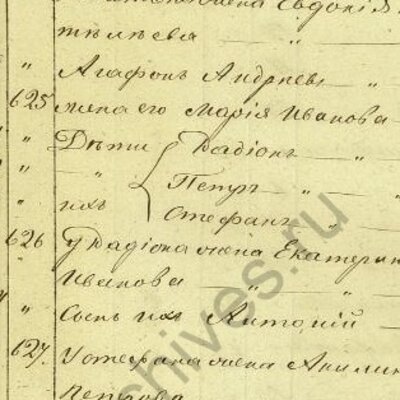 жена Евдокія
тѣлѣева "
" Агафонъ Андреевъ "
625 жена его Марія Иванова
" Дѣти Радіонъ
" " Петръ "
ихъ Стефанъ "
626 у Радіона жена Екатерин
Иванова " "
" Сынъ ихъ Антоній
627. У Стефана жена Акили
Петрова
chives.ru